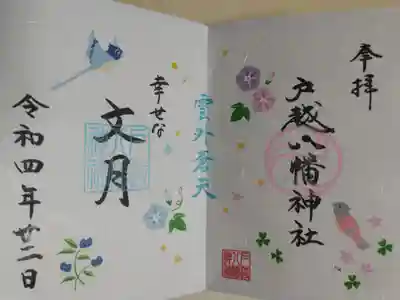 奉拝
戸越八幡神社
雲外蒼天
幸せな
文月
令和四年廿二日